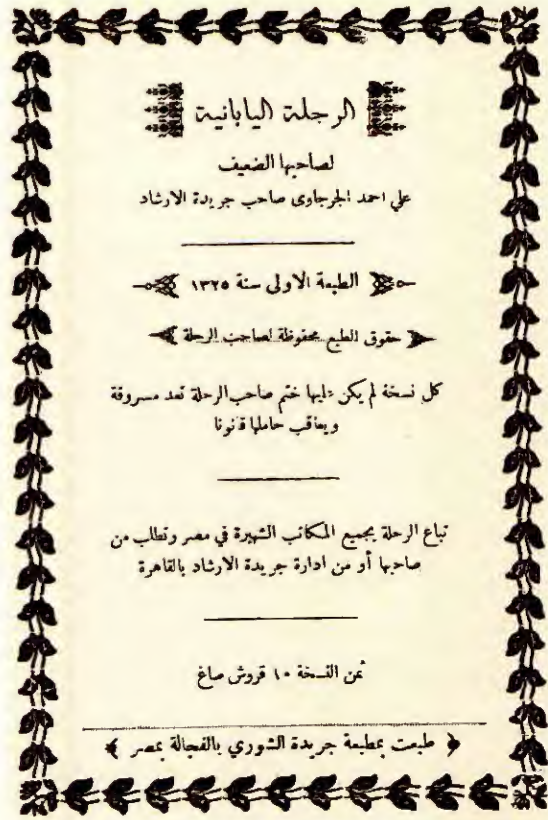 الرحلة اليابانية
لصاحبها الضعيف
علي احمد الجرجاوى صاحب جريدة الارشاد
الطبعة الاولى سنة ١٣٢٥
حقوق الطبع محفوظة لصاحب الرحلة
كل نسخة لم يكن عليها ختم صاحب الرحلة تعد مسروقة
ويعاقب حاملها قانونا
تباع الرحلة بجميع المكاتب الشهيرة في مصر وتطلب من
صاحبها أو من ادارة جريدة الارشاد بالقاهرة
ثمن النسخة ١٠ قروش صاغ
﴿ طبعت بمطبعة جريدة الشورى بالفجالة بمصر ﴾